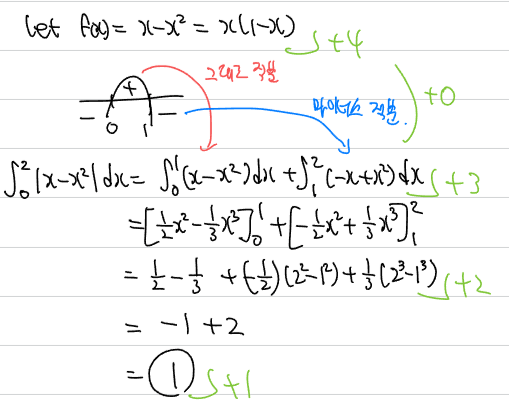 let f(x) = x-x² = x(1-x)
+4
+
그대로 적분
- 0 1 -
마이너스 적분
+0
∫₀²|x-x²|dx = ∫₀¹(x-x²)dx + ∫₁²(-x+x²)dx +3
= [½x²-⅓x³]₀¹ + [-½x²+⅓x³]₁²
= ½-⅓ + (-½)(2²-1²)+⅓(2³-1³) +2
= -1+2
= 1 +1